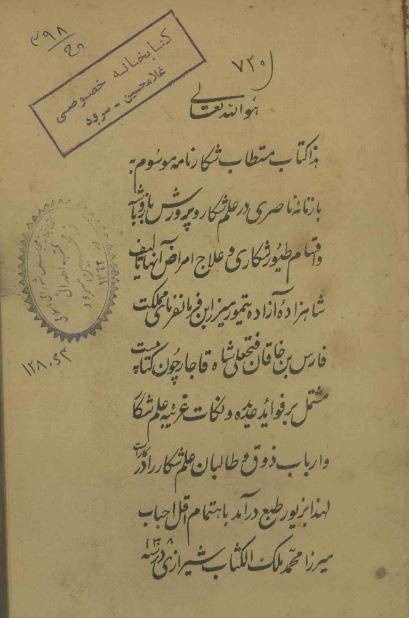 ۳۹۸
کتابخانه خصوصی
غلامحسین - سرود
۷۲۰
هو الله تعالی
هذا کتاب مستطاب شکارنامه موسوم به
بازنامه ناصری در علم شکار و پرورش باز و باشه
و اقسام طیور شکاری و علاج امراض آنها تالیف
شاهزاده آزاده تیمور میرزا ابن فرمانفرمای مملکت
فارس بن خاقان فتحعلی شاه قاجار چون کتابیست
مشتمل بر فواید عدیده و نکات غریبه علم شکار
و ارباب ذوق و طالبان علم شکار را در کار است
لهذا بزیور طبع درآمد باهتمام اقل احباب
میرزا محمد ملک الکتاب شیرازی در سنه ۱۳۰۸